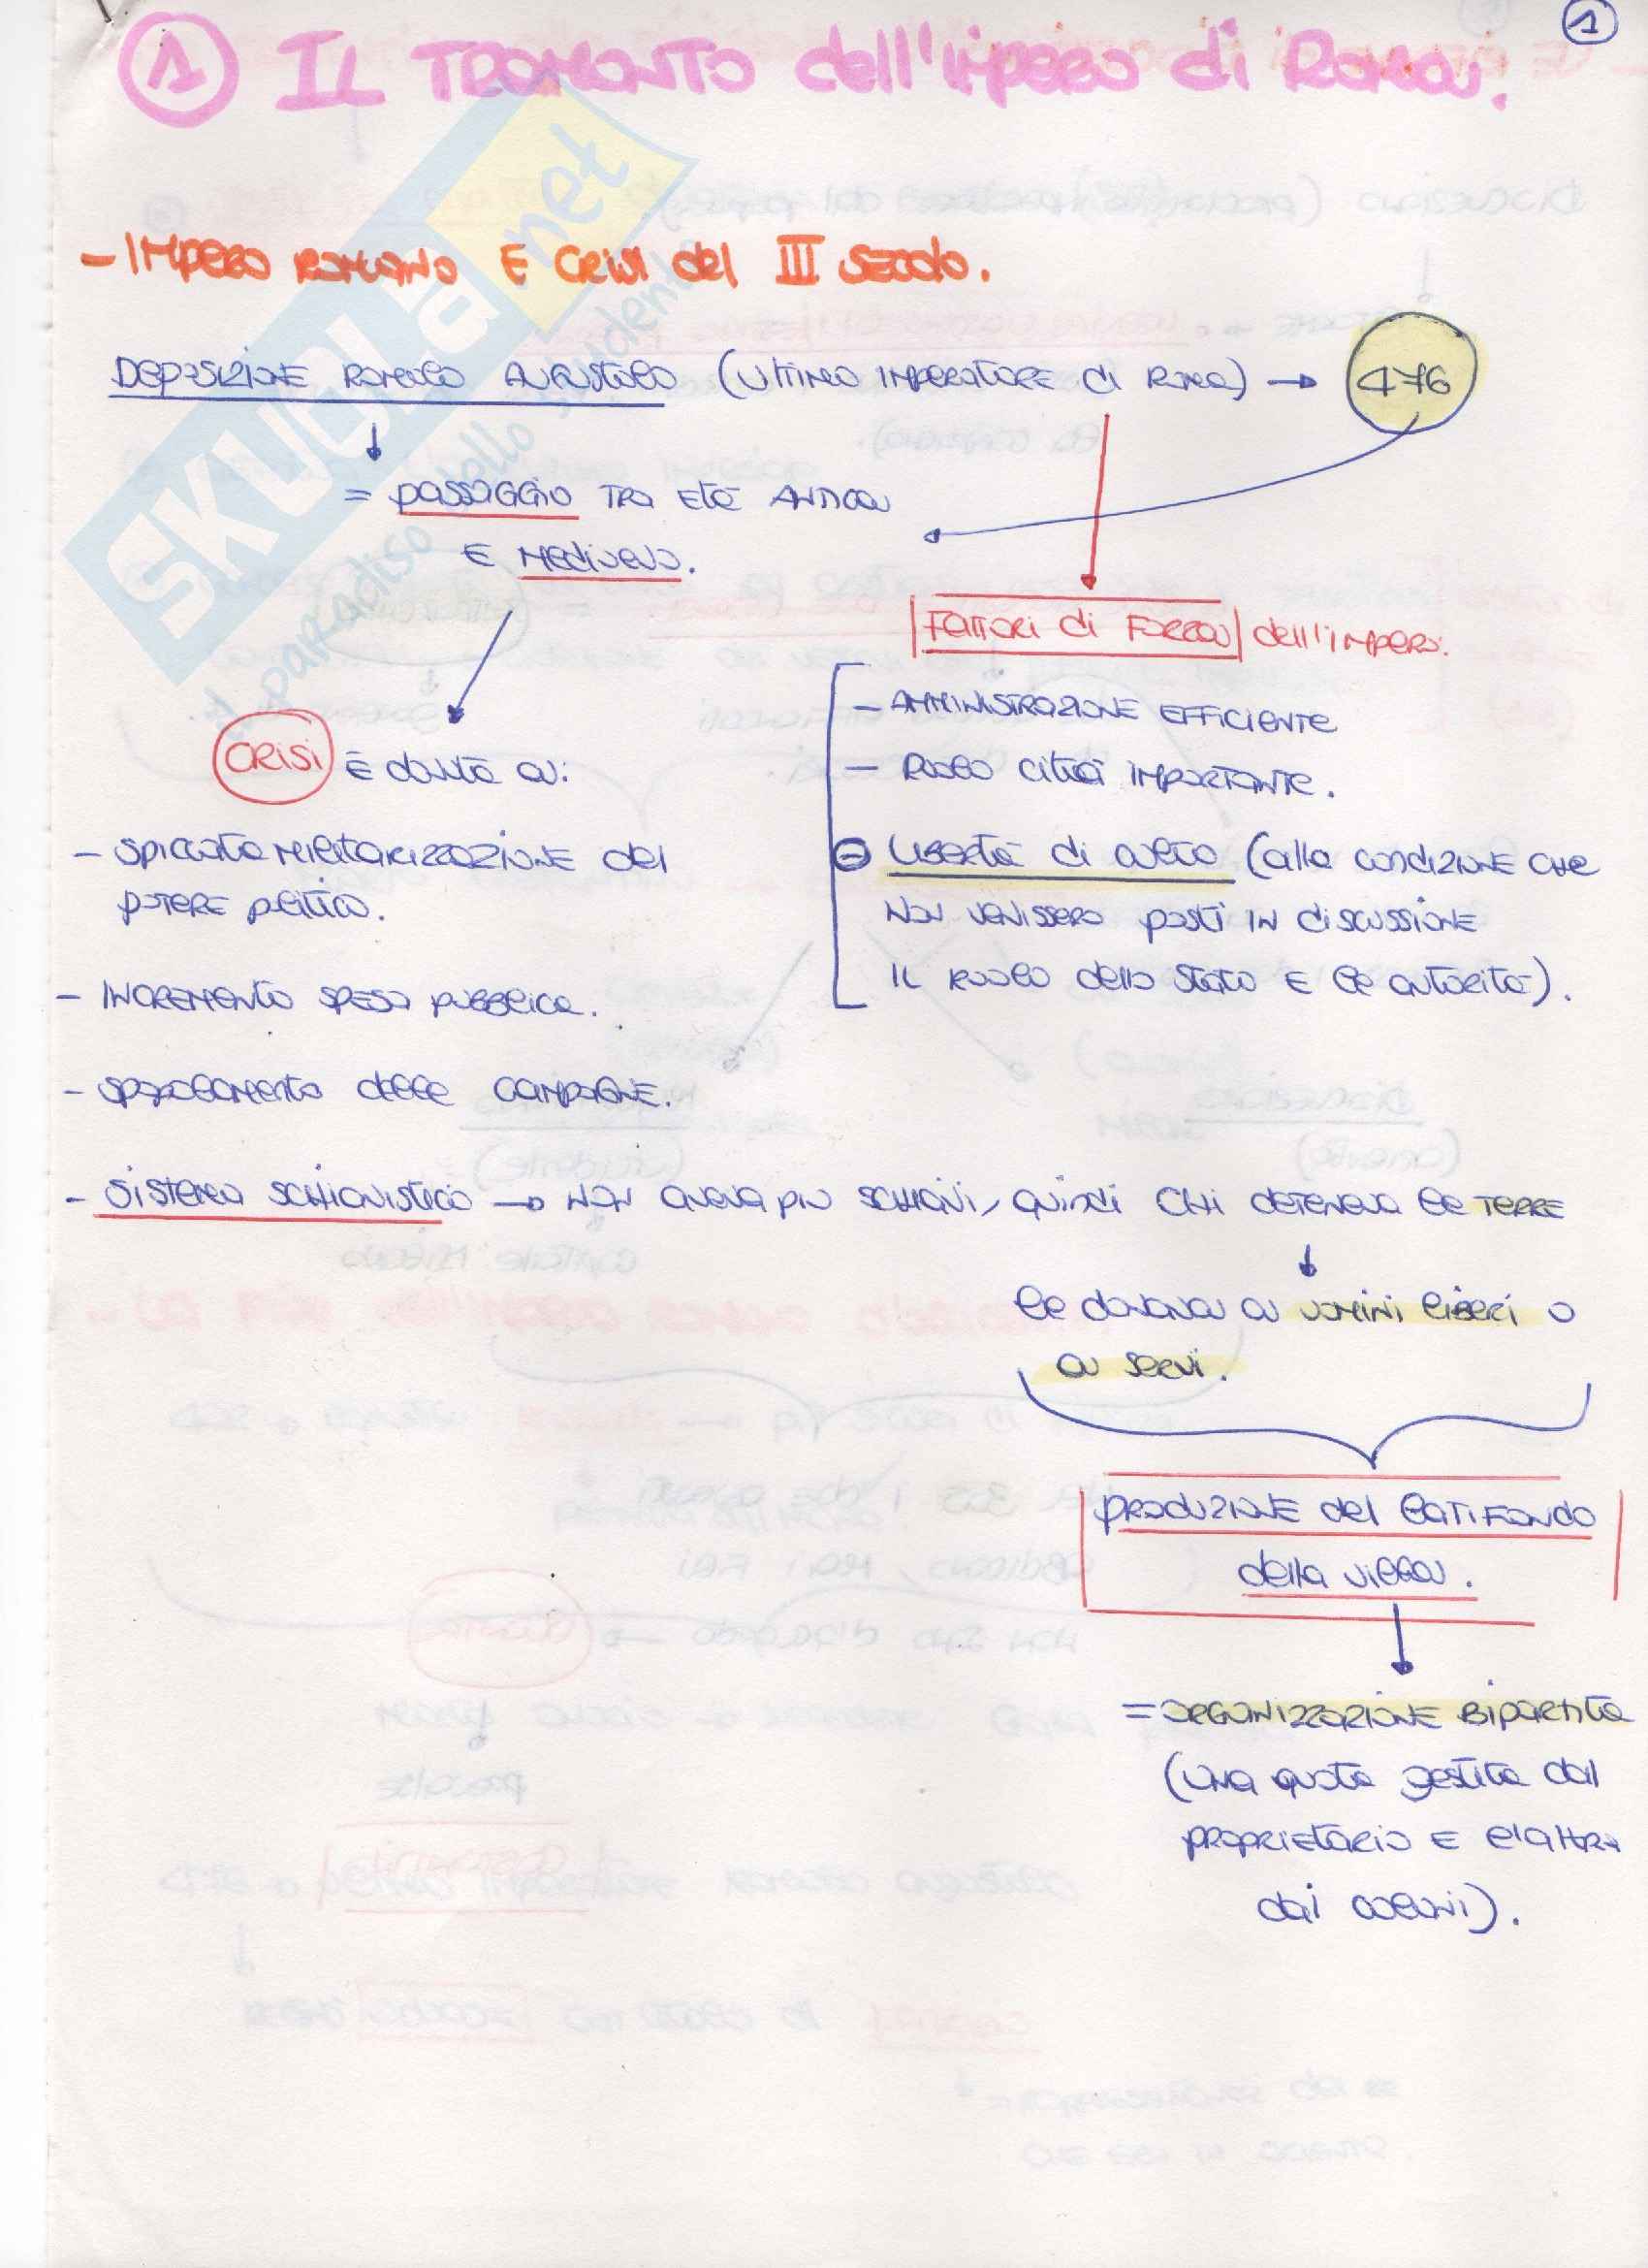 1
① IL TRAMONTO dell'impero di Roma.
- IMPERO ROMANO E CRISI del III SECOLO.
DEPOSIZIONE ROMOLO AUGUSTOLO (ULTIMO IMPERATORE di ROMA) → 476
↓
= PASSAGGIO TRA ETÀ ANTICA
E MEDIOEVO.
FATTORI di FORZA dell'IMPERO.
- AMMINISTRAZIONE EFFICIENTE
- RUOLO CITTÀ IMPORTANTE.
- LIBERTÀ di CULTO (alla CONDIZIONE CHE
NON VENISSERO POSTI IN DISCUSSIONE
IL RUOLO dello STATO E le AUTORITÀ).
CRISI È dovuta a:
- SPICCATA MILITARIZZAZIONE del
POTERE POLITICO.
- INCREMENTO SPESA PUBBLICA.
- SPOPOLAMENTO delle CAMPAGNE.
- SISTEMA SCHIAVISTICO → NON aveva più SCHIAVI, quindi CHI DETENEVA le TERRE
↓
le donava a UOMINI liberi o
a SERVI.
PRODUZIONE del LATIFONDO
della villa.
↓
= ORGANIZZAZIONE BIPARTITA
(una quota gestita dal
PROPRIETARIO E l'altra
dai coloni).
SKUOLA.net
il paradiso dello studente